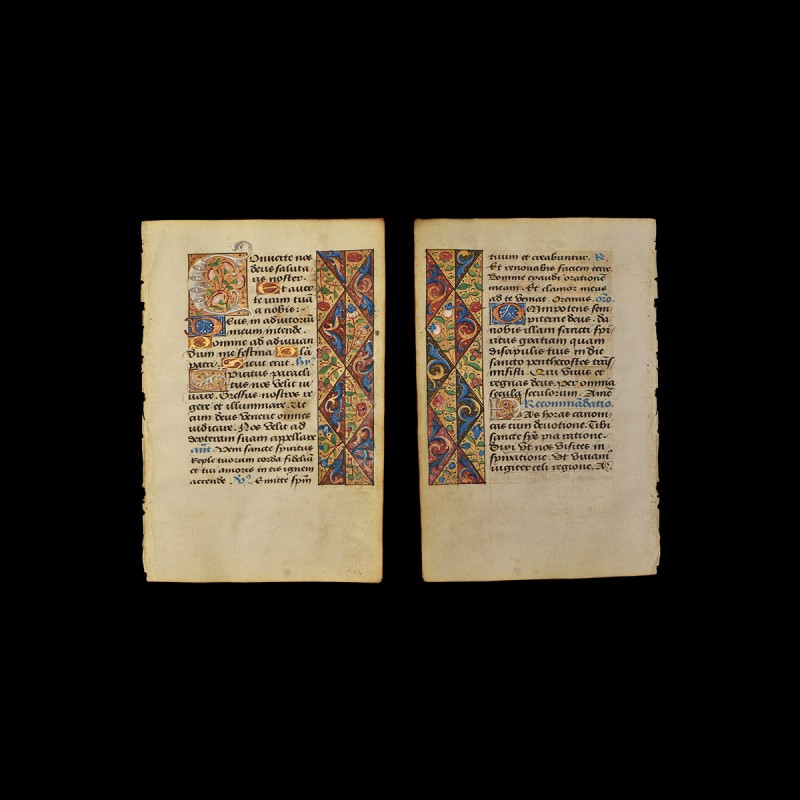 Converte nos
deus saluta
ris noster.
Et aver
te iram tuā
a nobis:
Deus in adiutoriū
meum intende.
Domine ad adiuvan
dum me festina. Glā
patri. Sicut erat. hy.
Spiritus paracli
tus nos velit iu
vare. Gressus nostros re
gere et illuminare. Ut
cum deus venerit omnes
iudicare. Nos velit ad
dexteram suam appellare
ant. Veni sancte spiritus
Reple tuorum corda fideliū
et tui amoris in eis ignem
accende. V. Emitte spm
tuum et creabuntur. R.
Et renovabis faciem terre
Domine exaudi orationē
meam. Et clamor meus
ad te veniat. Oremus. oro.
Omnipotens sem
piterne deus. da
nobis illam sancti spi
ritus gratiam quam
discipulis tuis in die
sancto penthecostes trās
misisti. Qui vivis et
regnas deus. per omnia
secula seculorum. Amē
Recommēdatio.
Has horas canoni
cas cum devotione. Tibi
sancte spūs pia ratione.
Dixi Ut nos visites in
spiratione. Ut vivam9
iugiter celi regione. A.